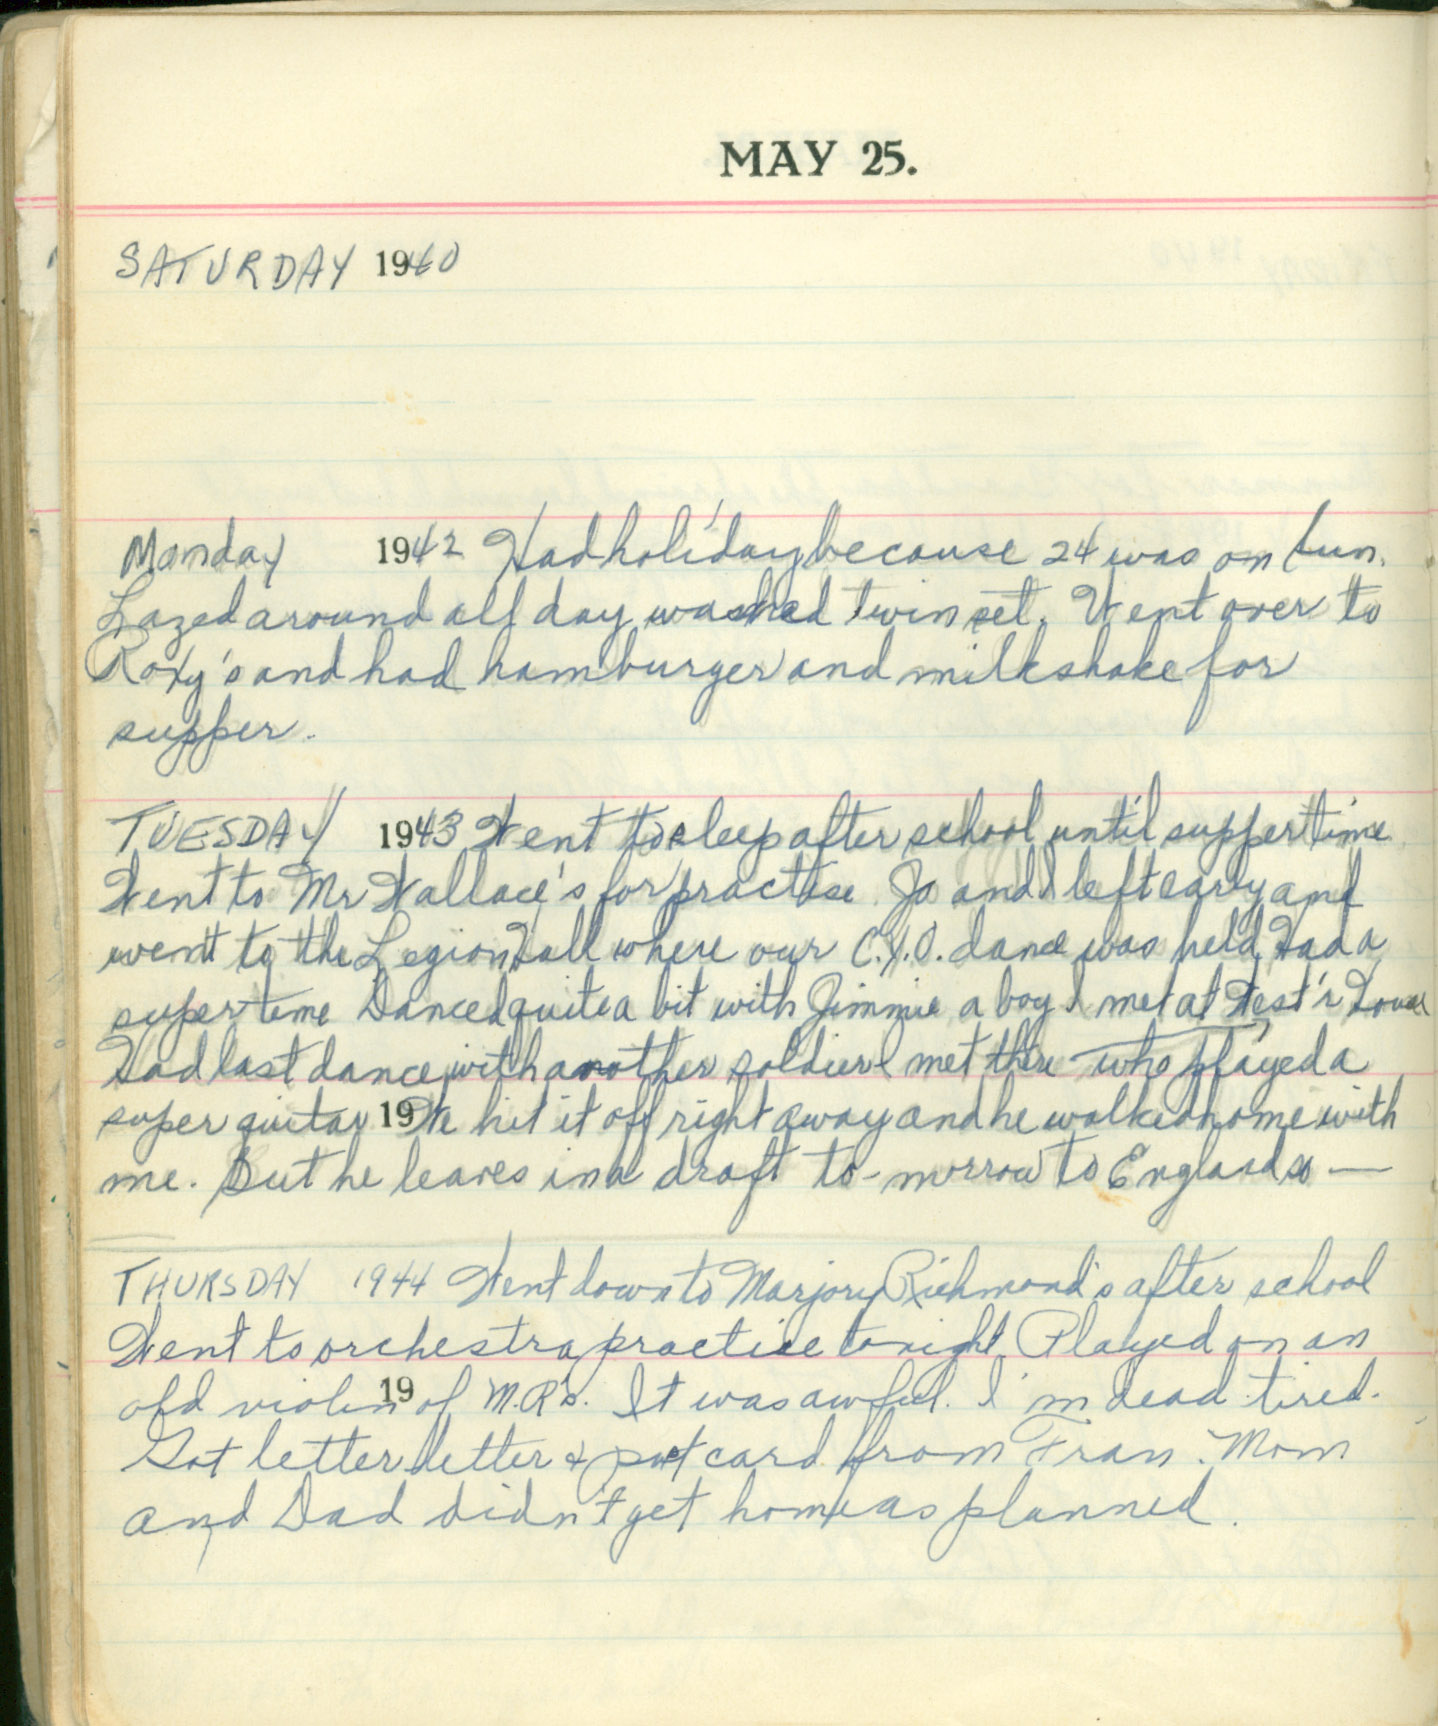 MAY 25.
SATURDAY 1940
Monday 1942 Had holiday because 24 was on Sun.
Lazed around all day washed twin set. Went over to
Roxy's and had hamburger and milkshake for
supper.
TUESDAY 1943 Went to sleep after school until suppertime
Went to Mr Wallace's for practise. Jo and I left early and
went to the Legion Hall where our C.Y.O. dance was held. Had a
super time Danced quite a bit with Jimmie a boy I met at
Had last dance with another soldier I met there who played a
super guitar 19 We hit it off right away and he walked home with
me. But he leaves in a draft to-morrow to England so —
THURSDAY 1944 Went down to Marjory Richmond's after school
Went to orchestra practice tonight. Played on an
old violin 19 of M.R's. It was awful. I'm dead tired.
Got letter letter & post card from Fran. Mom
and Dad didn't get home as planned.